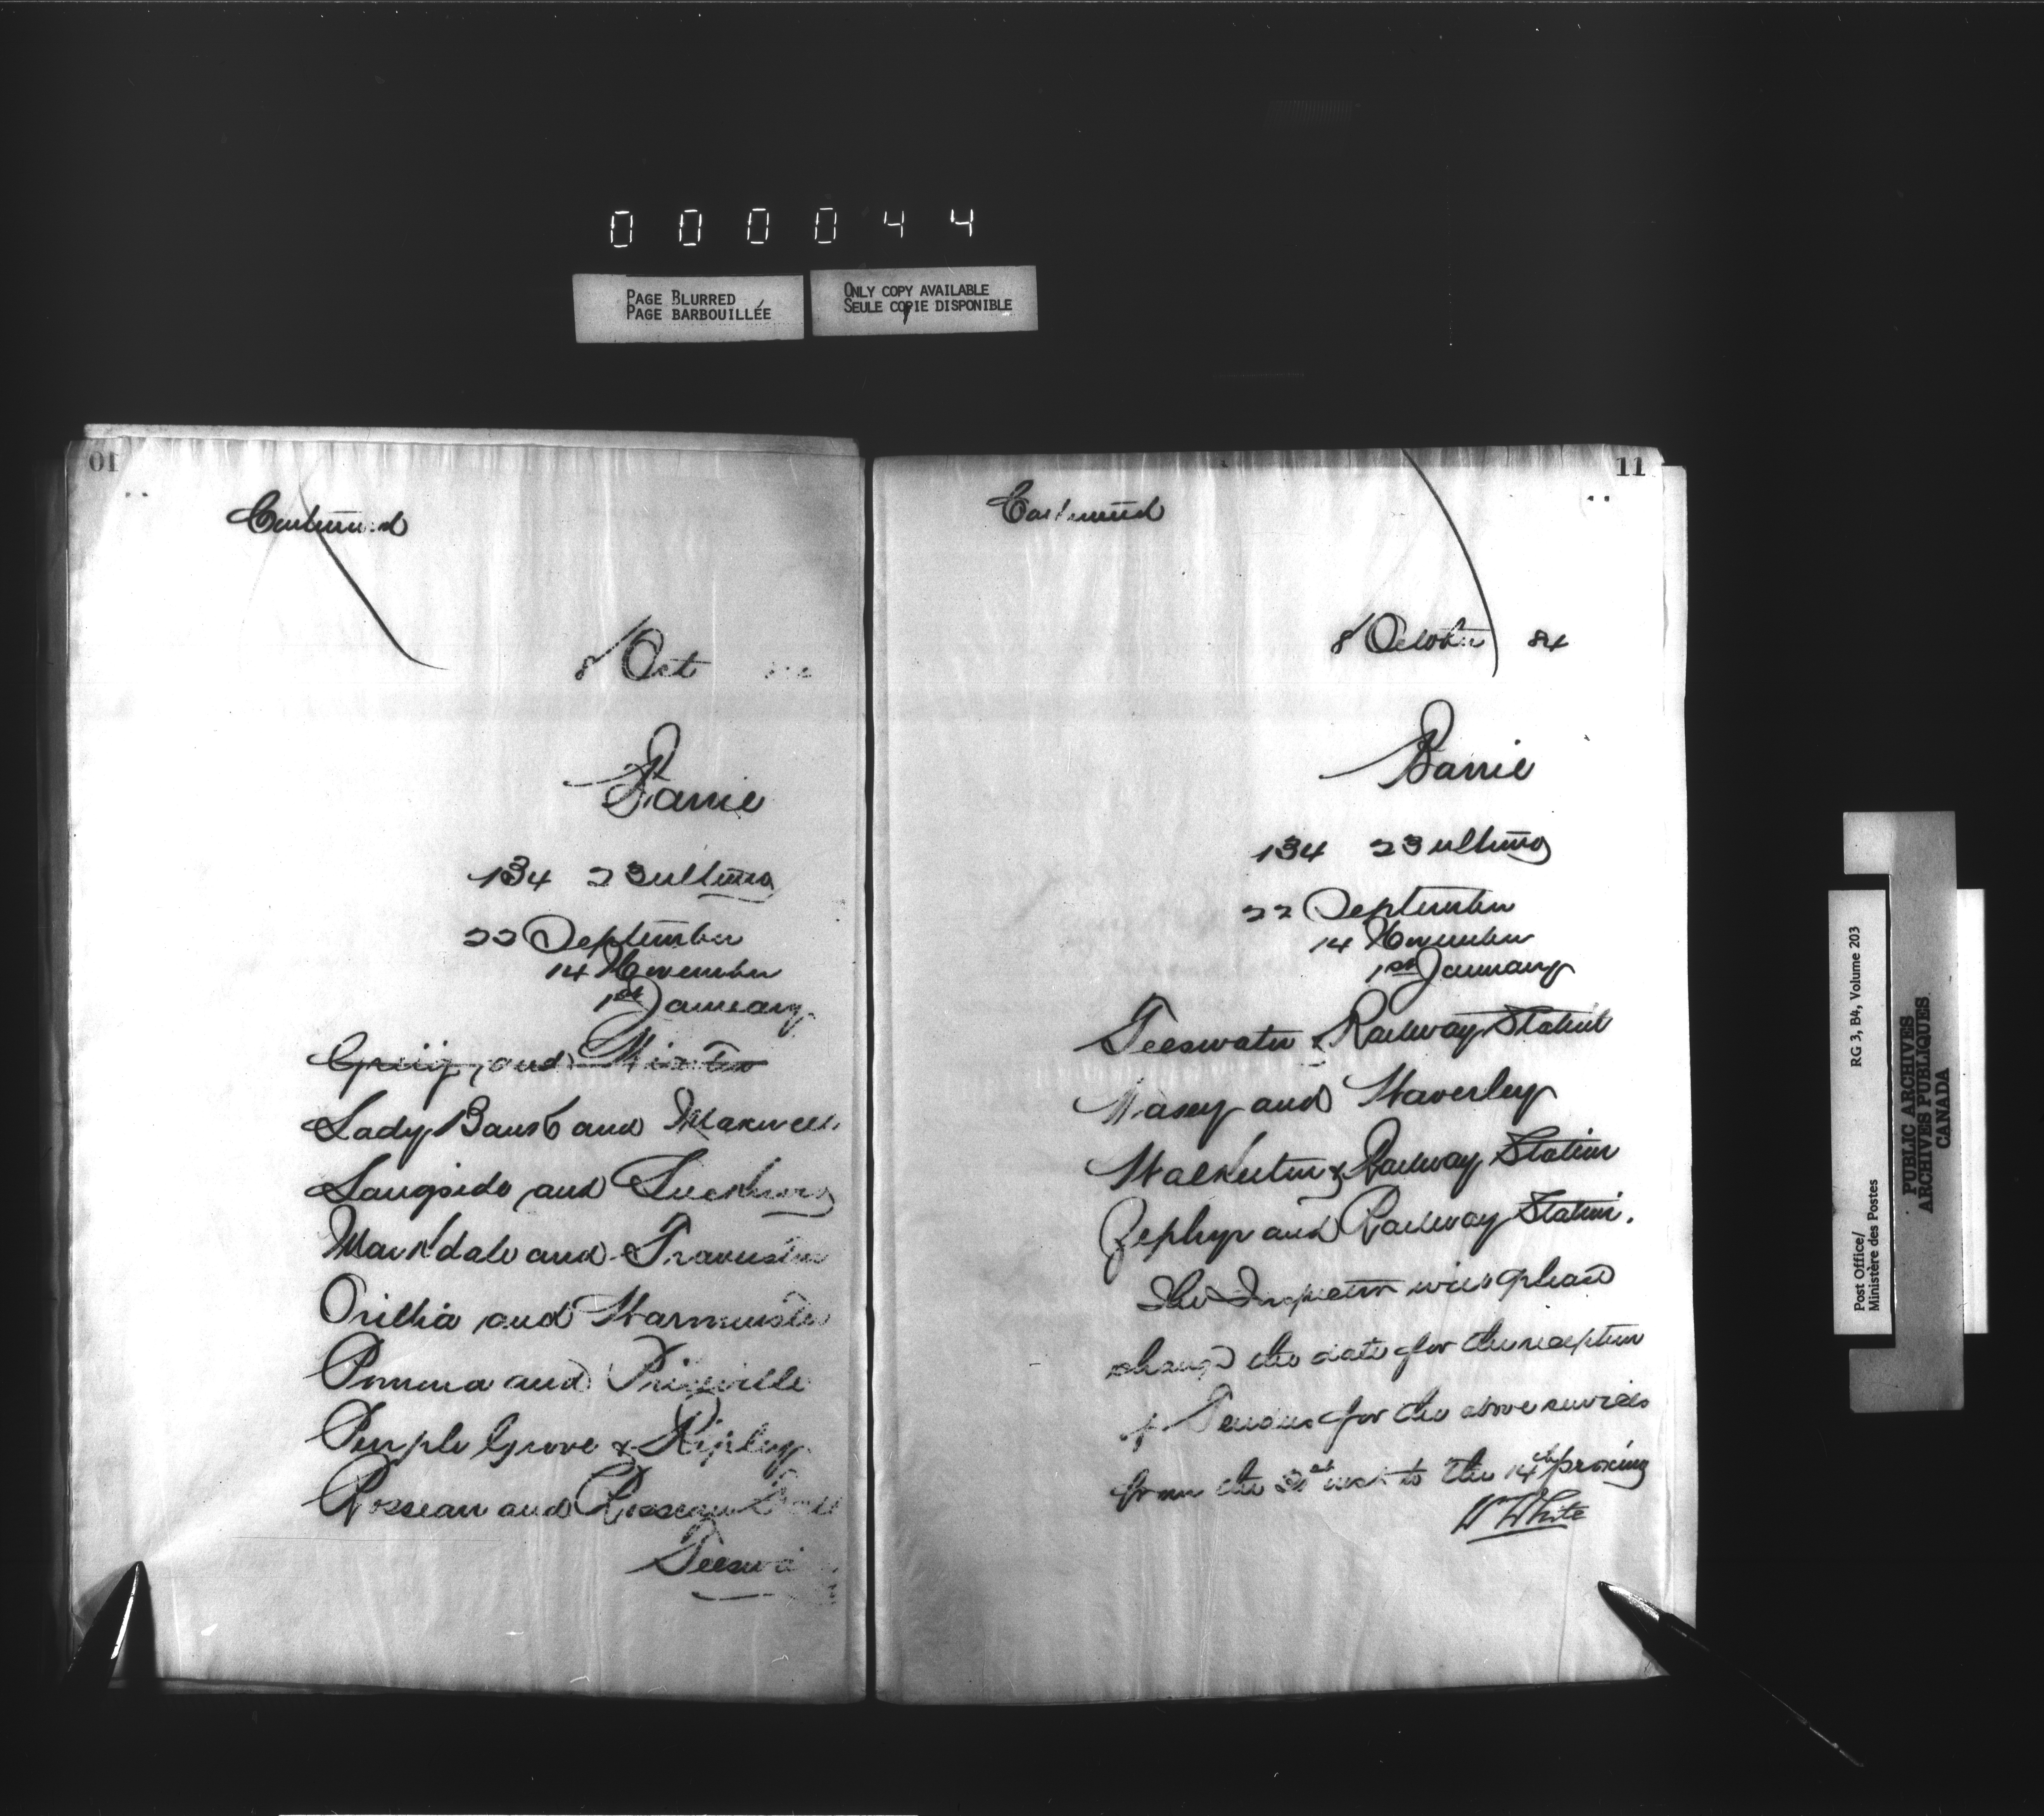 000044
PAGE BLURRED
PAGE BARBOUILLÉE
ONLY COPY AVAILABLE
SEULE COPIE DISPONIBLE
10
Continued
8 Oct
Barrie
134 23 ultimo
22 September
14 November
1st January
Greig and
Lady Bank and Maxwell
Langside and Lucknow
Markdale and Traverston
Orillia and Warminster
Pomona and Priceville
Purple Grove & Ripley
Rosseau and Rosseau
Teeswa
11
Continued
8 October 84
Barrie
134 23 ultimo
22 September
14 November
1st January
Teeswater & Railway Station
Vasey and Waverley
Walkerton & Railway Station
Zephyr and Railway Station.
The Inspector will please
change the date for the reception
of Tenders for the above services
from the 31st inst to the 14th proximo
W White
Post Office/
Ministère des Postes
RG 3, B4, Volume 203
PUBLIC ARCHIVES
ARCHIVES PUBLIQUES
CANADA